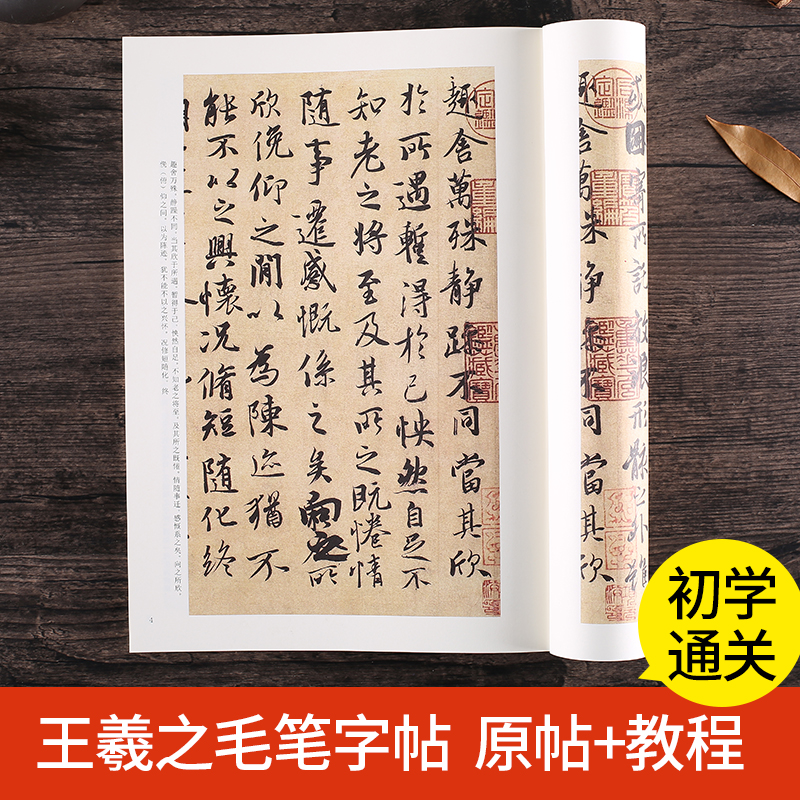 或因寄所託放浪形骸之外雖
趣舍萬殊静躁不同當其欣
趣舍萬殊静躁不同當其欣
於所遇蹔得於己怏然自足不
知老之将至及其所之既惓情
随事遷感慨係之矣向之所
欣俛仰之閒以為陳迹猶不
能不以之興懷况脩短随化終
趣舍万殊，静躁不同，当其欣于所遇，暂得于己，怏然自足，不知老之将至，及其所之既惓，情随事迁，感慨系之矣。向之所欣，
俛（俯）仰之间，以为陈迹，犹不能不以之兴怀，况修短随化，终
4
初学
通关
王羲之毛笔字帖 原帖+教程